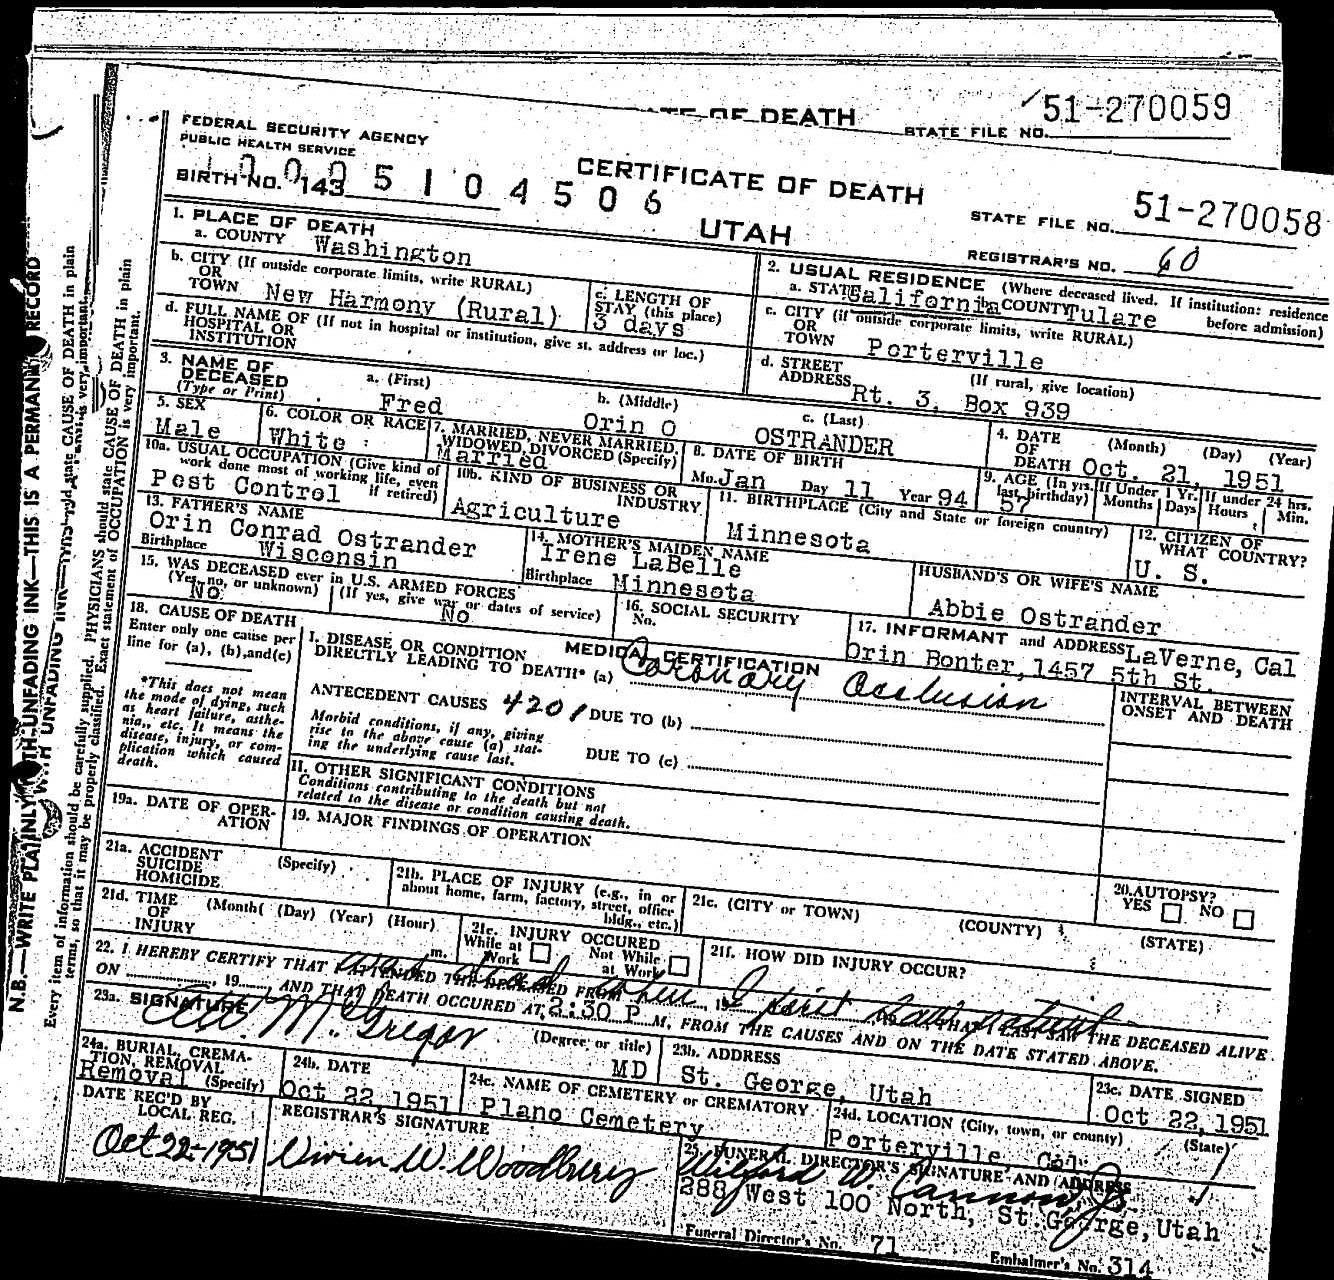 TE OF DEATH
STATE FILE NO. 51-270059
FEDERAL SECURITY AGENCY
PUBLIC HEALTH SERVICE
CERTIFICATE OF DEATH
BIRTH NO. 143
5 1 0 4 5 0 6
UTAH
STATE FILE NO. 51-270058
REGISTRAR'S NO. 60
1. PLACE OF DEATH
a. COUNTY Washington
b. CITY (If outside corporate limits, write RURAL)
OR
TOWN New Harmony (Rural)
c. LENGTH OF
STAY (this place)
3 days
d. FULL NAME OF (If not in hospital or institution, give st. address or loc.)
HOSPITAL OR
INSTITUTION
2. USUAL RESIDENCE (Where deceased lived. If institution: residence
before admission)
a. STATE California b. COUNTY Tulare
c. CITY (if outside corporate limits, write RURAL)
OR
TOWN Porterville
d. STREET (If rural, give location)
ADDRESS Rt. 3, Box 939
3. NAME OF
DECEASED
(Type or Print)
a. (First) Fred
b. (Middle) Orin O
c. (Last) OSTRANDER
4. DATE (Month) (Day) (Year)
OF
DEATH Oct. 21, 1951
5. SEX
Male
6. COLOR OR RACE
White
7. MARRIED, NEVER MARRIED,
WIDOWED, DIVORCED (Specify)
Married
8. DATE OF BIRTH
Mo. Jan Day 11 Year 94
9. AGE (In yrs.
last birthday)
57
If Under 1 Yr.
Months Days
If under 24 hrs.
Hours Min.
10a. USUAL OCCUPATION (Give kind of
work done most of working life, even
if retired)
Pest Control
10b. KIND OF BUSINESS OR
INDUSTRY
Agriculture
11. BIRTHPLACE (City and State or foreign country)
Minnesota
12. CITIZEN OF
WHAT COUNTRY?
U. S.
13. FATHER'S NAME
Orin Conrad Ostrander
Birthplace Wisconsin
14. MOTHER'S MAIDEN NAME
Irene LaBelle
Birthplace Minnesota
HUSBAND'S OR WIFE'S NAME
Abbie Ostrander
15. WAS DECEASED ever in U.S. ARMED FORCES
(Yes, no, or unknown) (If yes, give war or dates of service)
No No
16. SOCIAL SECURITY
No.
17. INFORMANT and ADDRESS LaVerne, Cal
Orin Bonter, 1457 5th St.
18. CAUSE OF DEATH
Enter only one cause per
line for (a), (b), and (c)
*This does not mean
the mode of dying, such
as heart failure, asthe-
nia, etc. It means the
disease, injury, or com-
plication which caused
death.
MEDICAL CERTIFICATION
I. DISEASE OR CONDITION
DIRECTLY LEADING TO DEATH* (a) Coronary Occlusion
ANTECEDENT CAUSES 4201 DUE TO (b)
Morbid conditions, if any, giving
rise to the above cause (a) stat-
ing the underlying cause last.
DUE TO (c)
II. OTHER SIGNIFICANT CONDITIONS
Conditions contributing to the death but not
related to the disease or condition causing death.
INTERVAL BETWEEN
ONSET AND DEATH
19a. DATE OF OPER-
ATION
19. MAJOR FINDINGS OF OPERATION
20. AUTOPSY?
YES NO
21a. ACCIDENT (Specify)
SUICIDE
HOMICIDE
21b. PLACE OF INJURY (e.g., in or
about home, farm, factory, street, office
bldg., etc.)
21c. (CITY or TOWN) (COUNTY) (STATE)
21d. TIME (Month( (Day) (Year) (Hour)
OF
INJURY m.
21e. INJURY OCCURED
While at Work
Not While at Work
21f. HOW DID INJURY OCCUR?
22. I HEREBY CERTIFY THAT I ATTENDED THE DECEASED FROM , 19 , 19 THAT I LAST SAW THE DECEASED ALIVE
was dead when I first saw
ON , 19 AND THAT DEATH OCCURED AT 2:30 P. M, FROM THE CAUSES AND ON THE DATE STATED ABOVE.
23a. SIGNATURE (Degree or title)
McGregor MD
23b. ADDRESS
St. George, Utah
23c. DATE SIGNED
Oct 22, 1951
24a. BURIAL, CREMA-
TION, REMOVAL
(Specify)
Removal
24b. DATE
Oct 22 1951
24c. NAME OF CEMETERY or CREMATORY
Plano Cemetery
24d. LOCATION (City, town, or county) (State)
Porterville, Cal
DATE REC'D BY
LOCAL REG.
Oct 22-1951
REGISTRAR'S SIGNATURE
Vivien W. Woodbury
25. FUNERAL DIRECTOR'S SIGNATURE AND ADDRESS
Wilford W. Cannon Jr.
288 West 100 North, St. George, Utah
Funeral Director's No. 71
Embalmer's No. 314
N.B.—WRITE PLAINLY WITH UNFADING INK—THIS IS A PERMANENT RECORD
Every item of information should be carefully supplied. PHYSICIANS should state CAUSE OF DEATH in plain
terms, so that it may be properly classified. Exact statement of OCCUPATION is very important.